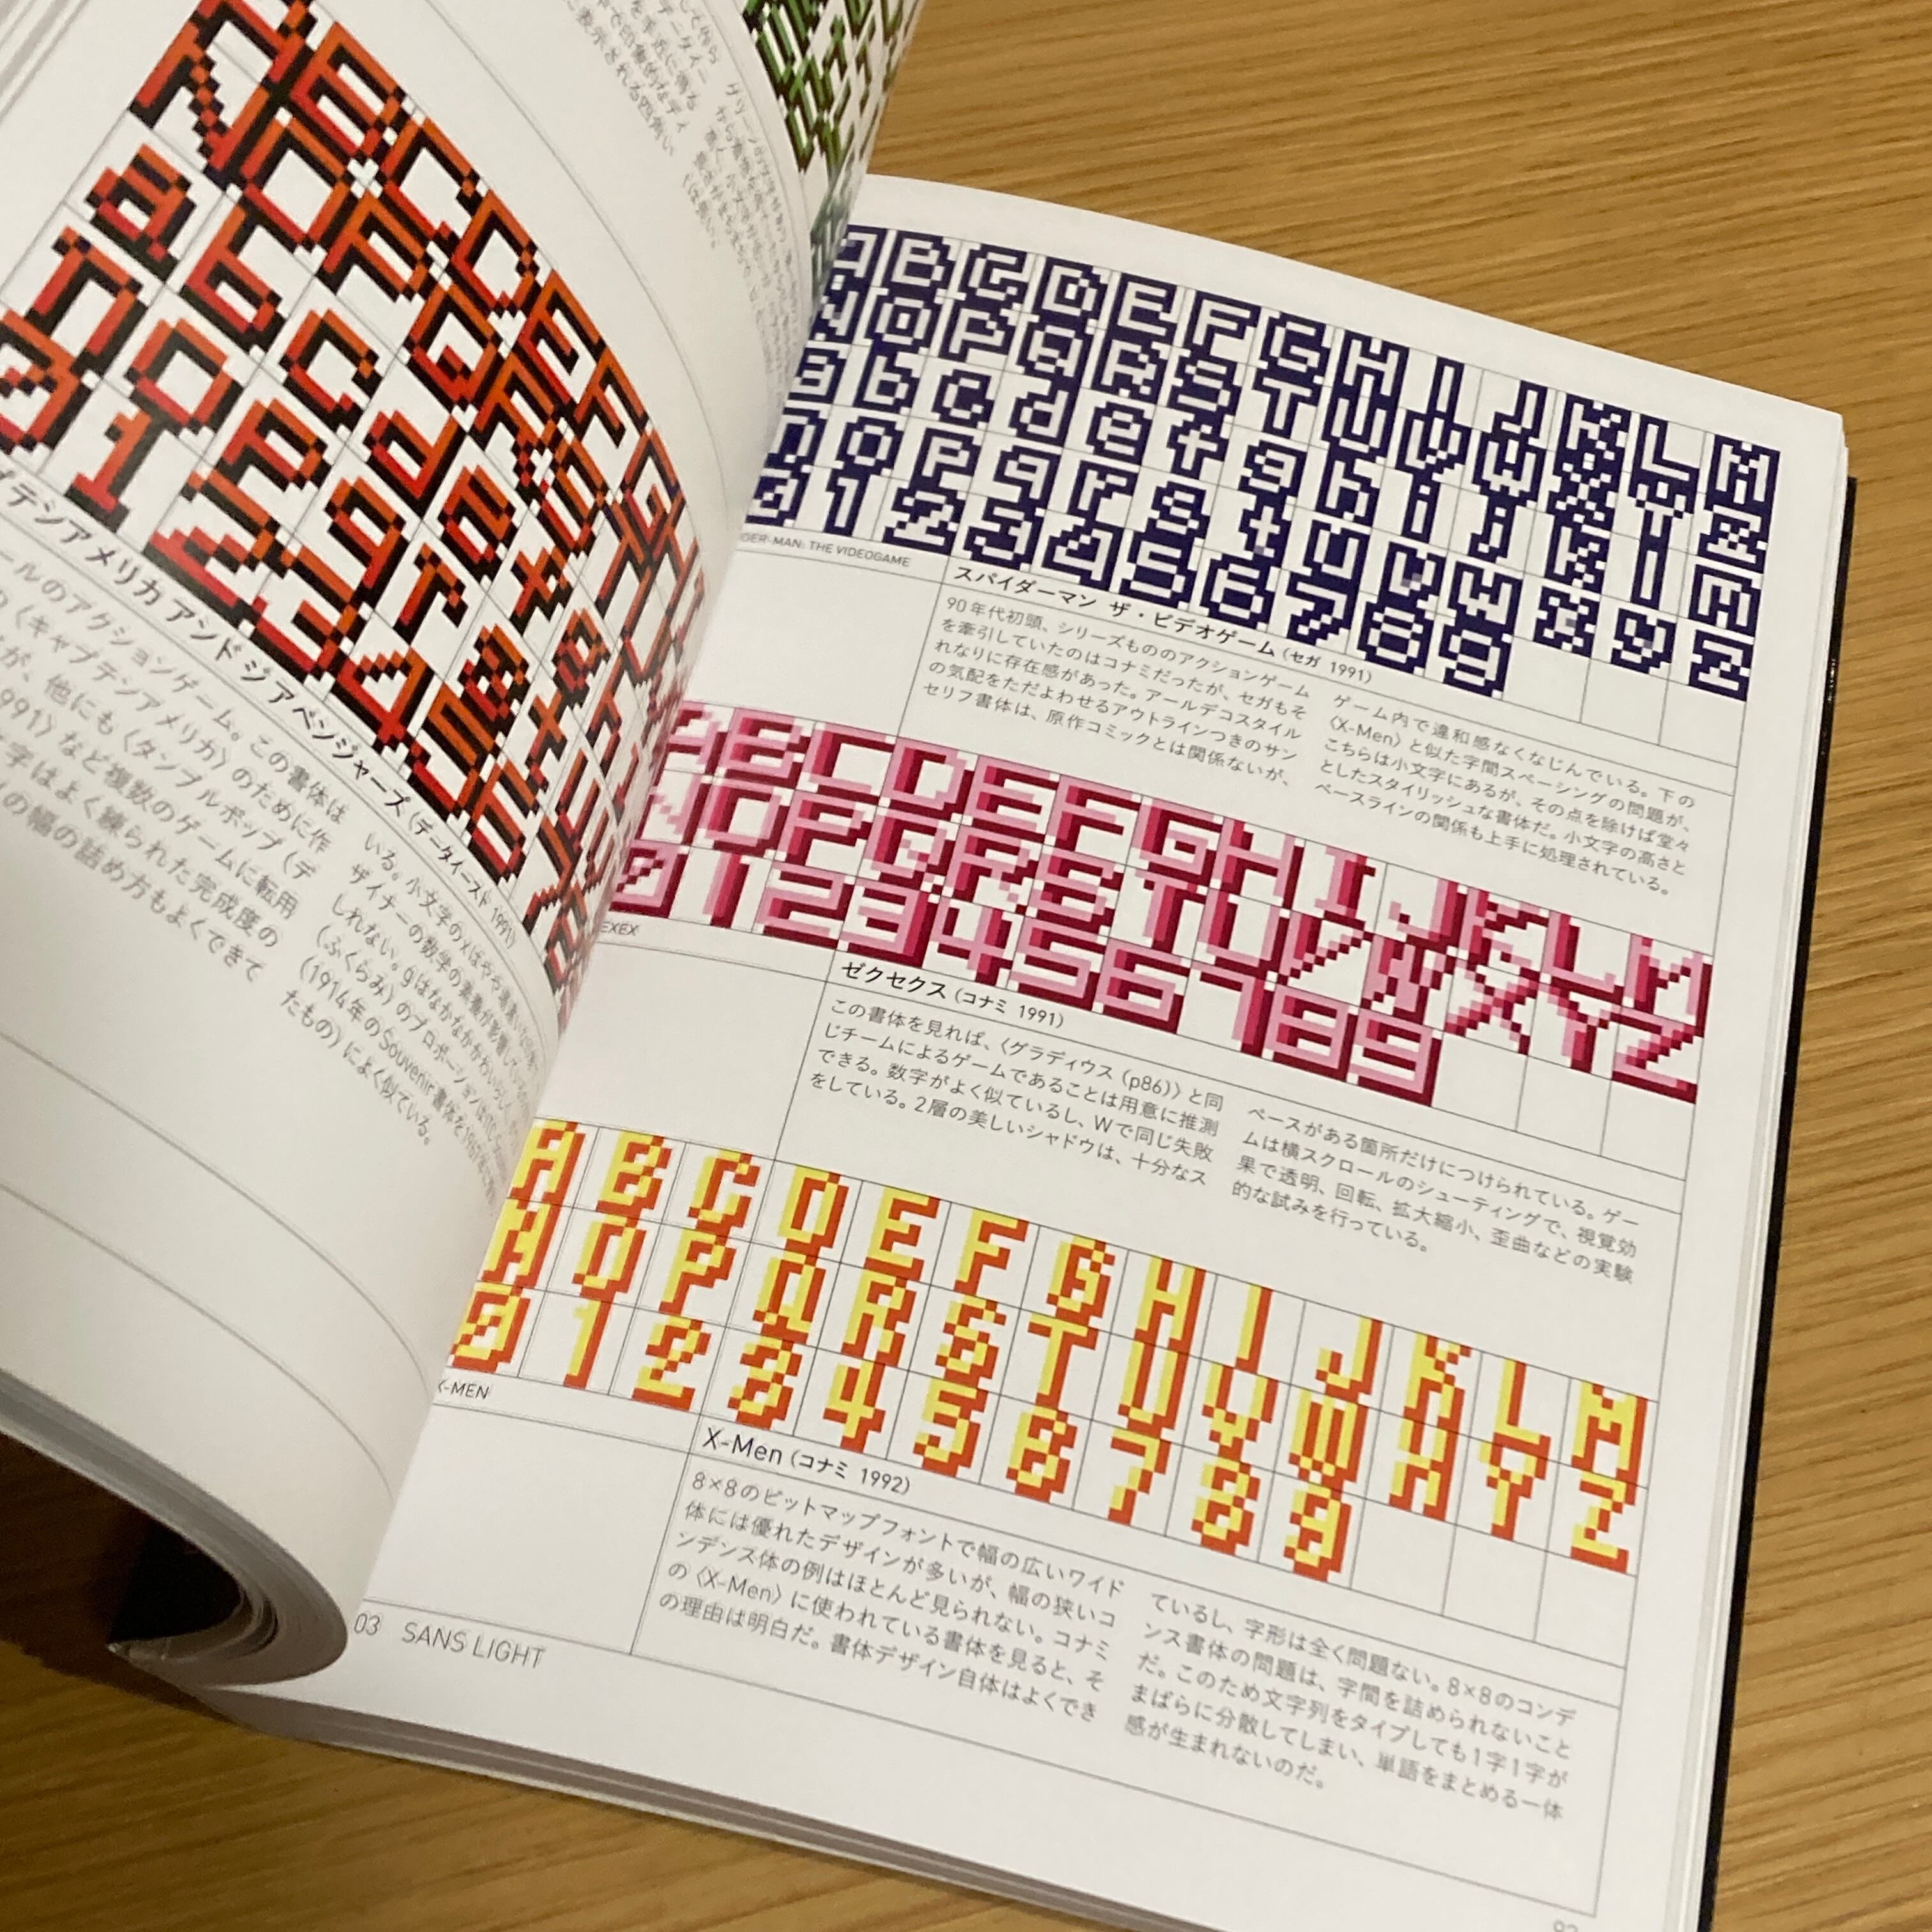 イ デ シ アメリカ アンド ジ アベンジャーズ（データイースト 1991）
ールのアクションゲーム。この書体は
〈キャプテンアメリカ〉のために作
が、他にも〈タンブルポップ（デ
1991）など複数のゲームに転用
字はよく練られた完成度の
の幅の詰め方もよくできて
いる。小文字のxはやや
ザイナーの数学の素養が影響し
しれない。gはなかなかかわいらしく、
（ふくらみ）のプロポーションは
（1914年のSouvenir書体を
たもの）によく似ている。
ABCDEFGHIJKLM
NOPQRSTUVWXYZ
abcdefghijklm
nopqrstuvwxyz
0123456789
DER-MAN: THE VIDEOGAME
スパイダーマン ザ・ビデオゲーム（セガ 1991）
90年代初頭、シリーズもののアクションゲーム
を牽引していたのはコナミだったが、セガもそ
れなりに存在感があった。アールデコスタイル
の気配をただよわせるアウトラインつきのサン
セリフ書体は、原作コミックとは関係ないが、
ゲーム内で違和感なくなじんでいる。下の
〈X-Men〉と似た字間スペーシングの問題が、
こちらは小文字にあるが、その点を除けば堂々
としたスタイリッシュな書体だ。小文字の高さと
ベースラインの関係も上手に処理されている。
ABCDEFGHIJKLM
NOPQRSTUVWXYZ
0123456789
EXEX
ゼクセクス（コナミ 1991）
この書体を見れば、〈グラディウス（p86）〉と同
じチームによるゲームであることは用意に推測
できる。数字がよく似ているし、Wで同じ失敗
をしている。2層の美しいシャドウは、十分なス
ペースがある箇所だけにつけられている。ゲー
ムは横スクロールのシューティングで、視覚効
果で透明、回転、拡大縮小、歪曲などの実験
的な試みを行っている。
ABCDEFGHIJKLM
NOPQRSTUVWXYZ
0123456789
X-MEN
X-Men（コナミ 1992）
8×8のビットマップフォントで幅の広いワイド
体には優れたデザインが多いが、幅の狭いコ
ンデンス体の例はほとんど見られない。コナミ
の〈X-Men〉に使われている書体を見ると、そ
の理由は明白だ。書体デザイン自体はよくでき
ているし、字形は全く問題ない。8×8のコンデ
ンス書体の問題は、字間を詰められないこと
だ。このため文字列をタイプしても1字1字が
まばらに分散してしまい、単語をまとめる一体
感が生まれないのだ。
03 SANS LIGHT